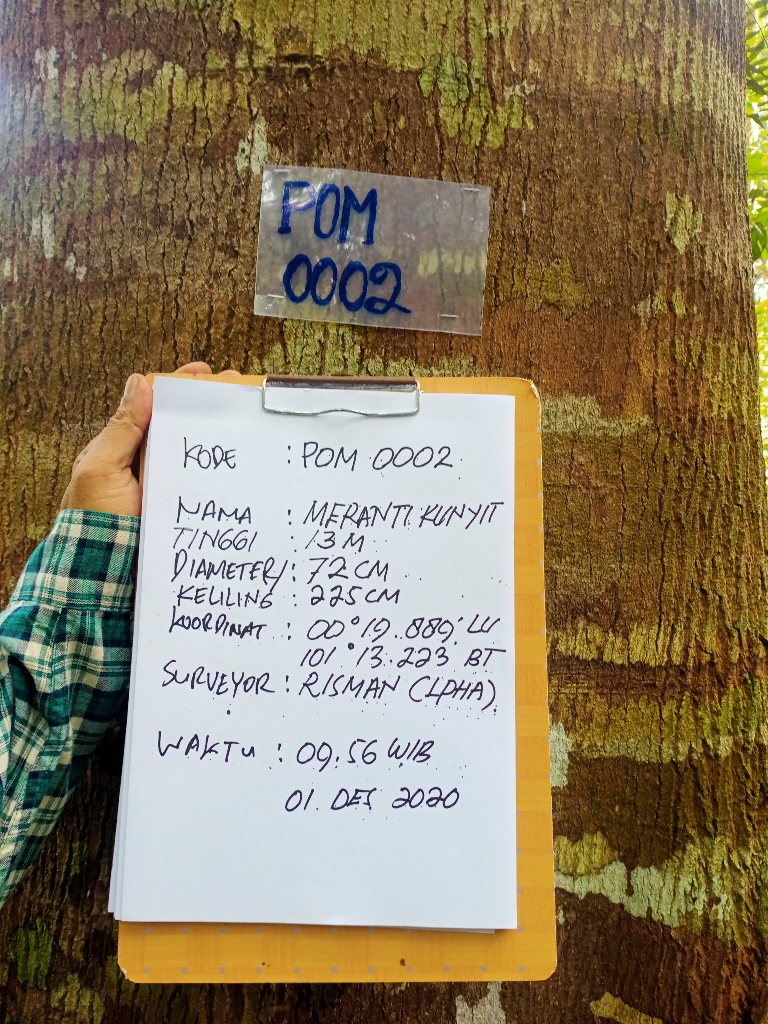 POM
0002
KODE : POM 0002
NAMA : MERANTI KUNYIT
TINGGI : 13 M
DIAMETER/ : 72 CM
KELILING : 225 CM
KOORDINAT : 00°19.889' LU
101°13.223 BT
SURVEYOR : RISMAN (LPHA)
WAKTU : 09.56 WIB
01 DES 2020